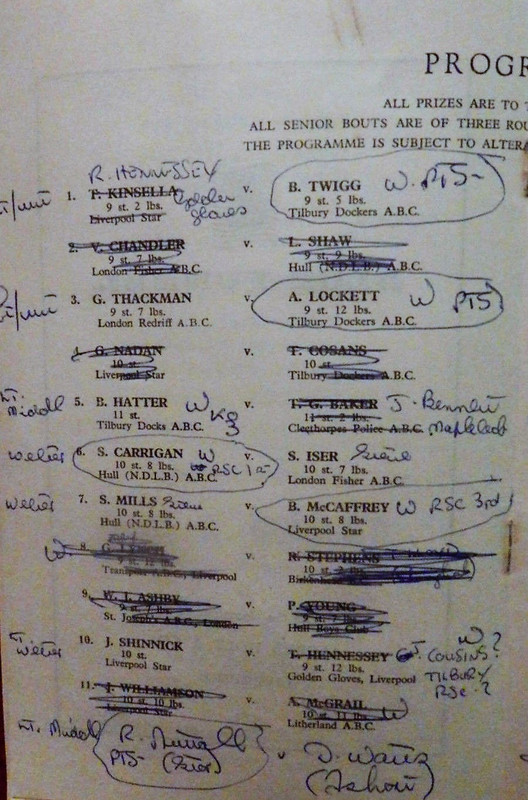 PROGR
ALL PRIZES ARE TO
ALL SENIOR BOUTS ARE OF THREE ROU
THE PROGRAMME IS SUBJECT TO ALTERA
R. HENNESSEY
1. P. KINSELLA Golden v. B. TWIGG W. PTS-
9 st. 2 lbs. gloves 9 st. 5 lbs.
Liverpool Star Tilbury Dockers A.B.C.
2. V. CHANDLER v. L. SHAW
9 st. 7 lbs. 9 st. 9 lbs.
London Fisher A.B.C. Hull (N.D.L.B.) A.B.C.
3. G. THACKMAN v. A. LOCKETT W PTS
9 st. 7 lbs. 9 st. 12 lbs.
London Redriff A.B.C. Tilbury Dockers A.B.C.
4. G. NADAN v. T. COSANS
10 st. 10 st.
Liverpool Star Tilbury Dockers A.B.C.
Lt. Middl 5. B. HATTER W KO 3 v. T. G. BAKER J. Bennett
11 st. 11 st. 2 lbs.
Tilbury Docks A.B.C. Cleethorpes Police A.B.C.
Welter 6. S. CARRIGAN W v. S. ISER
10 st. 8 lbs. RSC 10 st. 7 lbs.
Hull (N.D.L.B.) A.B.C. London Fisher A.B.C.
Welter 7. S. MILLS v. B. McCAFFREY W RSC 3rd
10 st. 8 lbs. 10 st. 8 lbs.
Hull (N.D.L.B.) A.B.C. Liverpool Star
8. v. R. STEPHENS
A.B.C., Liverpool
9. W. J. ASHBY v. P. YOUNG
9 st. 7 lbs. 9 st. 7 lbs.
St. Joseph's A.B.C., London Hull Boys Club
Welter 10. J. SHINNICK v. T. HENNESSEY J. COUSINS? W
10 st. 9 st. 12 lbs. TILBURY
Liverpool Star Golden Gloves, Liverpool RSC.?
11. J. WILLIAMSON v. A. McGRAIL W
10 st. 10 lbs. 10 st. 11 lbs.
Liverpool Star Litherland A.B.C.
Lt. Middl R. v D.
PTS-